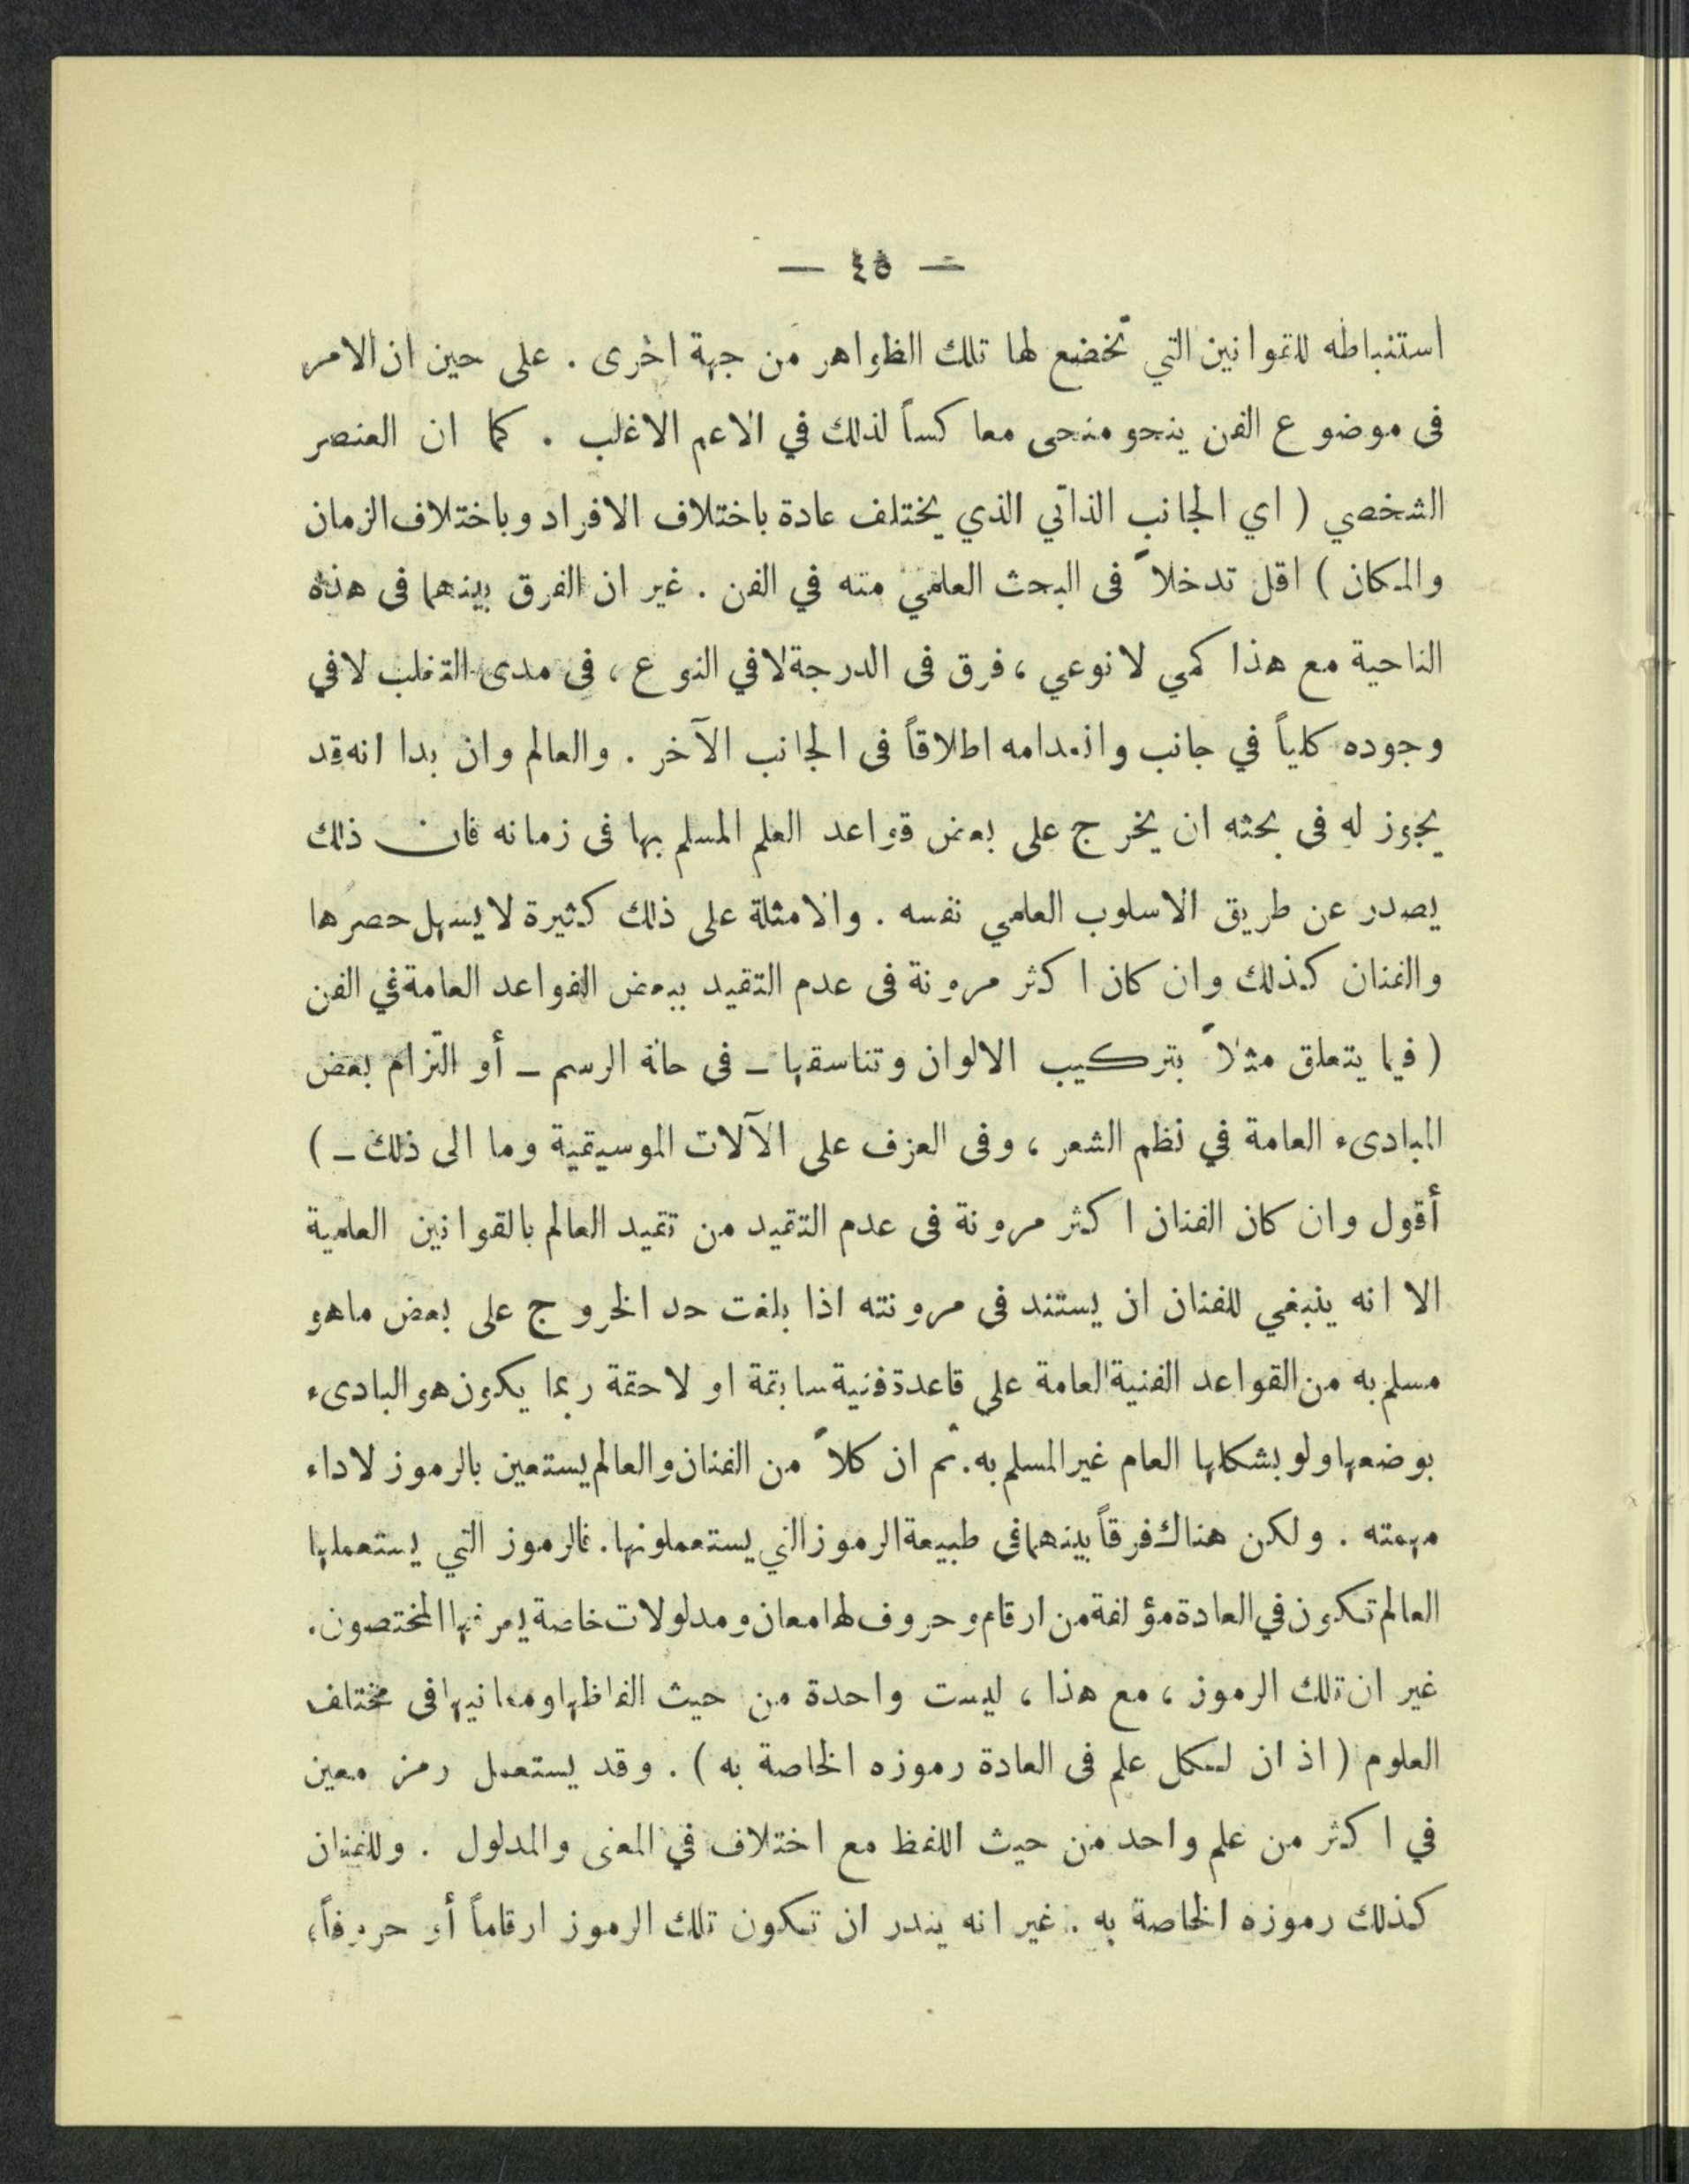 — ٤٥ —
استنباطه للقوانين التي تخضع لها تلك الظواهر من جهة اخرى . على حين ان الامر
في موضوع الفن ينحو منحى معاكساً لذلك في الاعم الاغلب . كما ان العنصر
الشخصي ( اي الجانب الذاتي الذي يختلف عادة باختلاف الافراد وباختلاف الزمان
والمكان ) اقل تدخلاً في البحث العلمي منه في الفن . غير ان الفرق بينهما في هذه
الناحية مع هذا كمي لا نوعي ، فرق في الدرجة لا في النوع ، في مدى التغلب لا في
وجوده كلياً في جانب وانعدامه اطلاقاً في الجانب الآخر . والعالم وان بدا انه قد
يجوز له في بحثه ان يخرج على بعض قواعد العلم المسلم بها في زمانه فان ذلك
يصدر عن طريق الاسلوب العلمي نفسه . والامثلة على ذلك كثيرة لا يسهل حصرها
والفنان كذلك وان كان اكثر مرونة في عدم التقيد ببعض القواعد العامة في الفن
( فيما يتعلق مثلاً بتركيب الالوان وتناسقها ـ في حالة الرسم ـ أو التزام بعض
المبادىء العامة في نظم الشعر ، وفي العزف على الآلات الموسيقية وما الى ذلك ـ )
أقول وان كان الفنان اكثر مرونة في عدم التقيد من تقيد العالم بالقوانين العلمية
الا انه ينبغي للفنان ان يستند في مرونته اذا بلغت حد الخروج على بعض ماهو
مسلم به من القواعد الفنية العامة على قاعدة فنية سابقة او لاحقة ربما يكون هو البادىء
بوضعها ولو بشكلها العام غير المسلم به . ثم ان كلاً من الفنان والعالم يستعين بالرموز لاداء
مهمته . ولكن هناك فرقاً بينهما في طبيعة الرموز التي يستعملونها . فالرموز التي يستعملها
العالم تكون في العادة مؤلفة من ارقام وحروف لها معان ومدلولات خاصة يعرفها المختصون .
غير ان تلك الرموز ، مع هذا ، ليست واحدة من حيث الفاظها ومعانيها في مختلف
العلوم ( اذ ان لكل علم في العادة رموزه الخاصة به ) . وقد يستعمل رمز معين
في اكثر من علم واحد من حيث اللفظ مع اختلاف في المعنى والمدلول . وللفنان
كذلك رموزه الخاصة به . غير انه يندر ان تكون تلك الرموز ارقاماً أو حروفاً ،